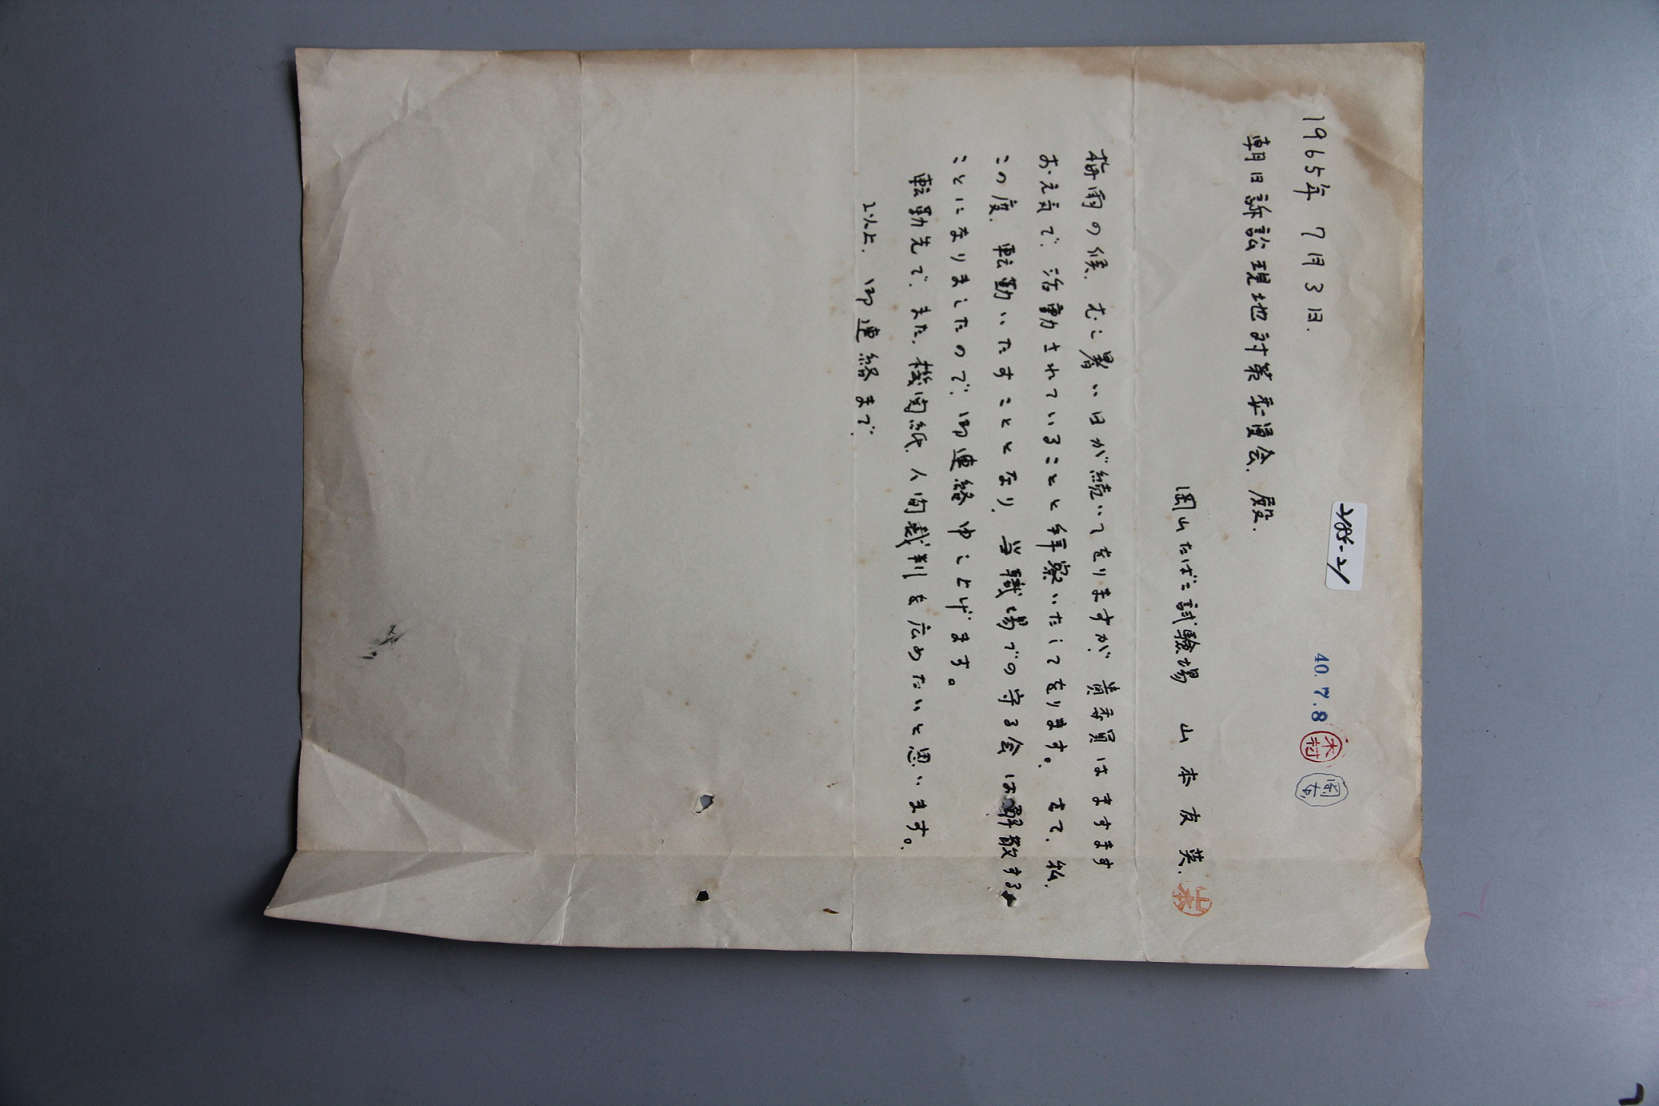 1965年 7月3日.
朝日訴訟現地対策委員会. 殿.
岡山たばこ試験場 山本友英.
山本
梅雨の候. むし暑い日が続いてをりますが 貴委員はますます
お元気で. 活動されていることと拝察いたしてをります。 さて. 私.
この度. 転勤いたすこととなり. 当職場での守る会は解散する
ことになりましたので. 御連絡申し上げます。
転勤先で. また. 機関紙. 人間裁判を広めたいと思います。
以上. 御連絡まで.
2188-21
40.7.8
木村